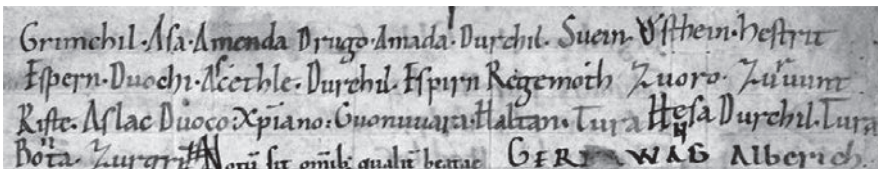 Grimchil · Asa · Amenda Drugo · Amada · Durchil · Suein · Usthein · hestrit
Espern · Duochi · Acethle · Durchil · Espirn Regemoth Zuoro · Zuruunt
Riste · Aslac Duoco · Xp̄iano · Guonuuara · Haltan · Tura Hesa Durchil · Tura
Bota · sit omib; GERI WAG Alberich